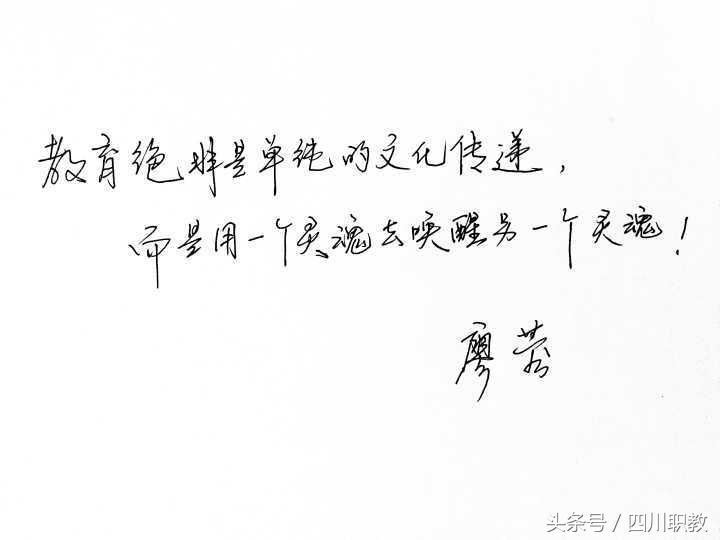 教育绝非是单纯的文化传递，
而是用一个灵魂去唤醒另一个灵魂！
廖蓉
头条号 / 四川职教